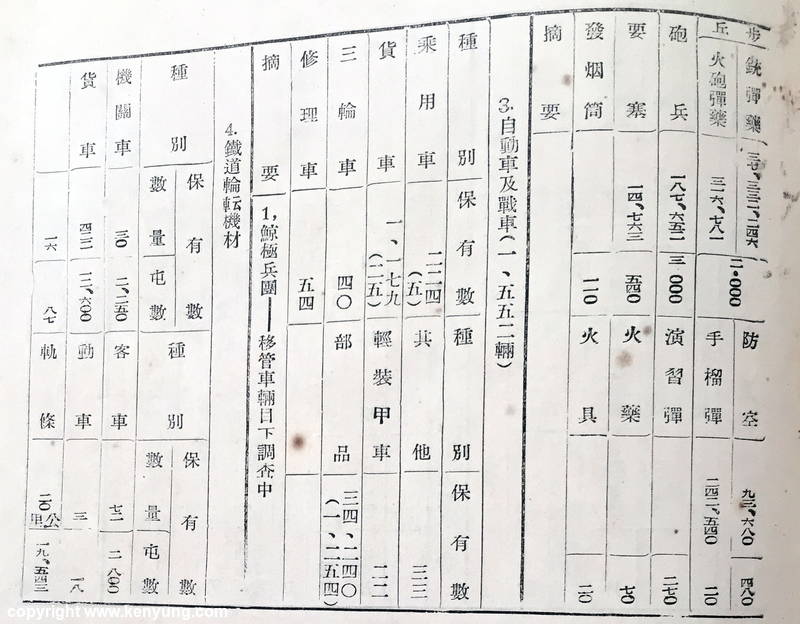 步兵 銃彈藥 三七、三三二、二四六 二・〇〇〇 防空 九三、六八〇 四八〇
火砲彈藥 三一六、七八一 手榴彈 二四二、五四〇 二〇
砲兵 一八七、六五二 三〇〇〇 演習彈 二七〇
要塞 一四、七六三 五四〇 火藥 七〇
發烟筒 一一〇 火具 二〇
摘要
3.自動車及戰車(一、五五二輛)
種別 保有數 種別 保有數
乘用車 二二四 (五) 其他 三三
貨車 一、一七九 (二五) 輕裝甲車
三輪車 四〇 部品 三四、二四〇 (一、二五四)
修理車 五四
摘要 1,鯨極兵團——移管車輛目下調査中
4.鐵道輪転機材
種別 保有數 種別 保有數
數量 屯數 數量 屯數
機關車 三〇 二、二五〇 客車 七二 二八〇〇
貨車 動車 三 一八
一六 八七 軌條 二〇公里 一九、五四三
copyright www.kenyung.com